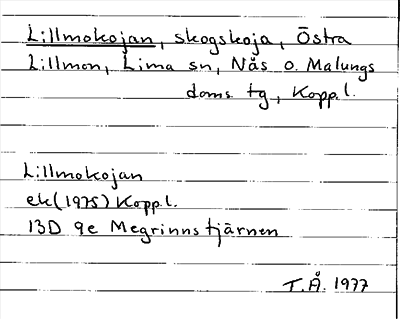 Lillmokojan, skogskoja, Östra
Lillmon, Lima sn, Nås o. Malungs
doms. tg, Kopp.l.
Lillmokojan
ek (1975) Kopp.l.
13D 9e Megrinnstjärnen
T.Å. 1977